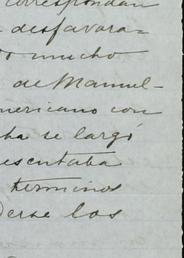 correspondan
desfavora-
mucho
de Manuel-
mericano con
se largó
esentaba
terminos
derse los